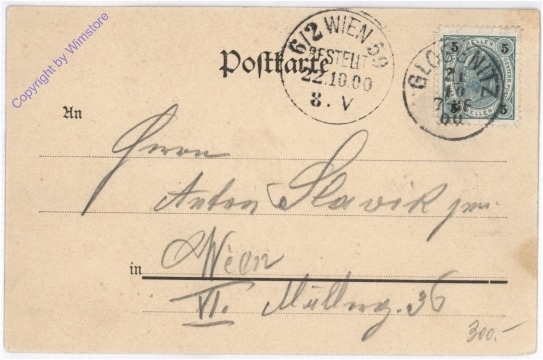 Copyright by Wimstore
6/2 WIEN 59
BESTELLT
22.10.00
8. V
Postkarte
GLOGGNITZ
21
10
00
5 5
5 5
An
Herrn
Anton Slavik jun.
in Wien
VI. Mollerg. 36
300.-